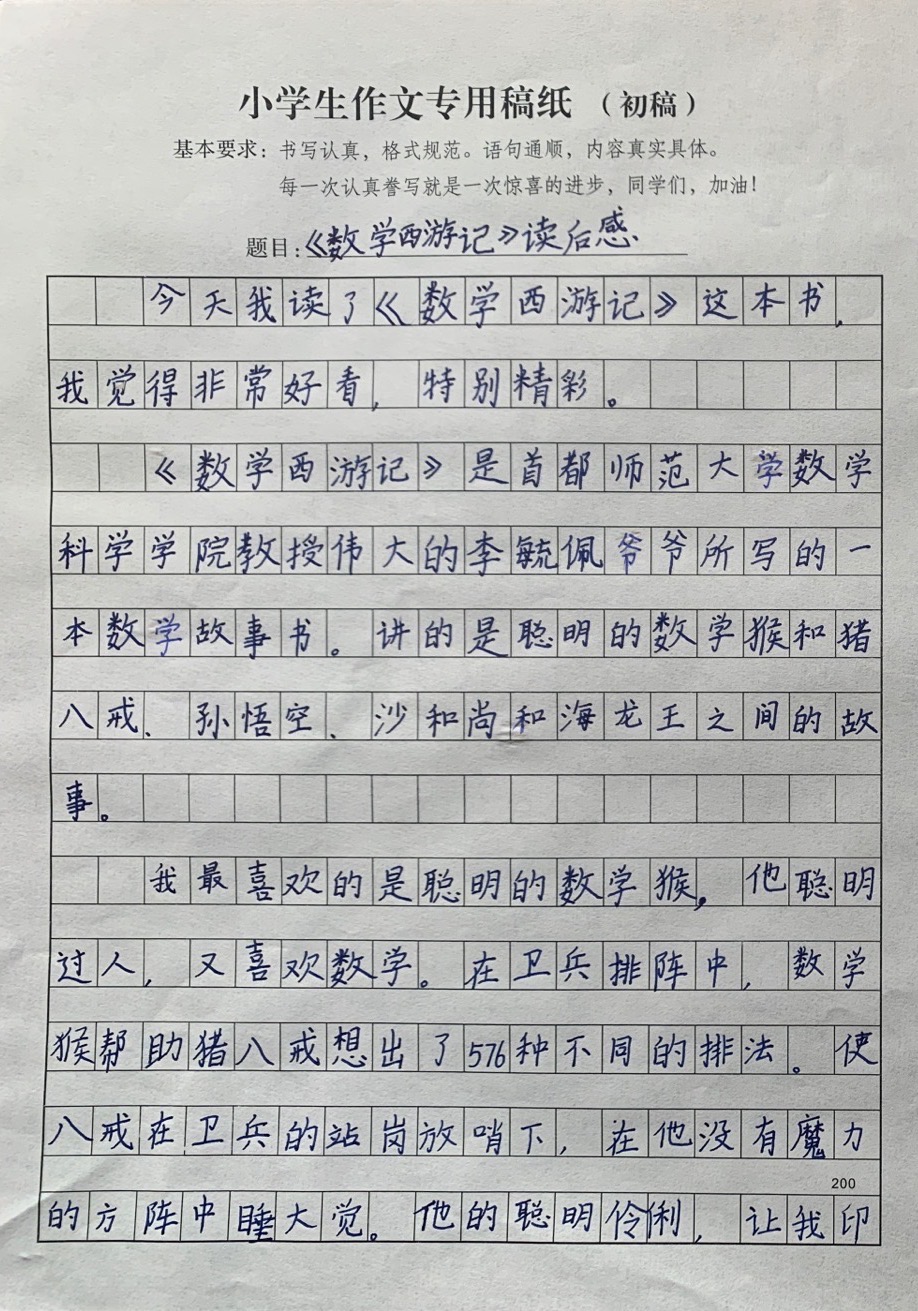 小学生作文专用稿纸（初稿）
基本要求：书写认真，格式规范。语句通顺，内容真实具体。
每一次认真誊写就是一次惊喜的进步，同学们，加油！
题目：《数学西游记》读后感
今天我读了《数学西游记》这本书，
我觉得非常好看，特别精彩。
《数学西游记》是首都师范大学数学
科学学院教授伟大的李毓佩爷爷所写的一
本数学故事书。讲的是聪明的数学猴和猪
八戒、孙悟空、沙和尚和海龙王之间的故
事。
我最喜欢的是聪明的数学猴，他聪明
过人，又喜欢数学。在卫兵排阵中，数学
猴帮助猪八戒想出了576种不同的排法。使
八戒在卫兵的站岗放哨下，在他没有魔力
200
的方阵中睡大觉。他的聪明伶俐，让我印